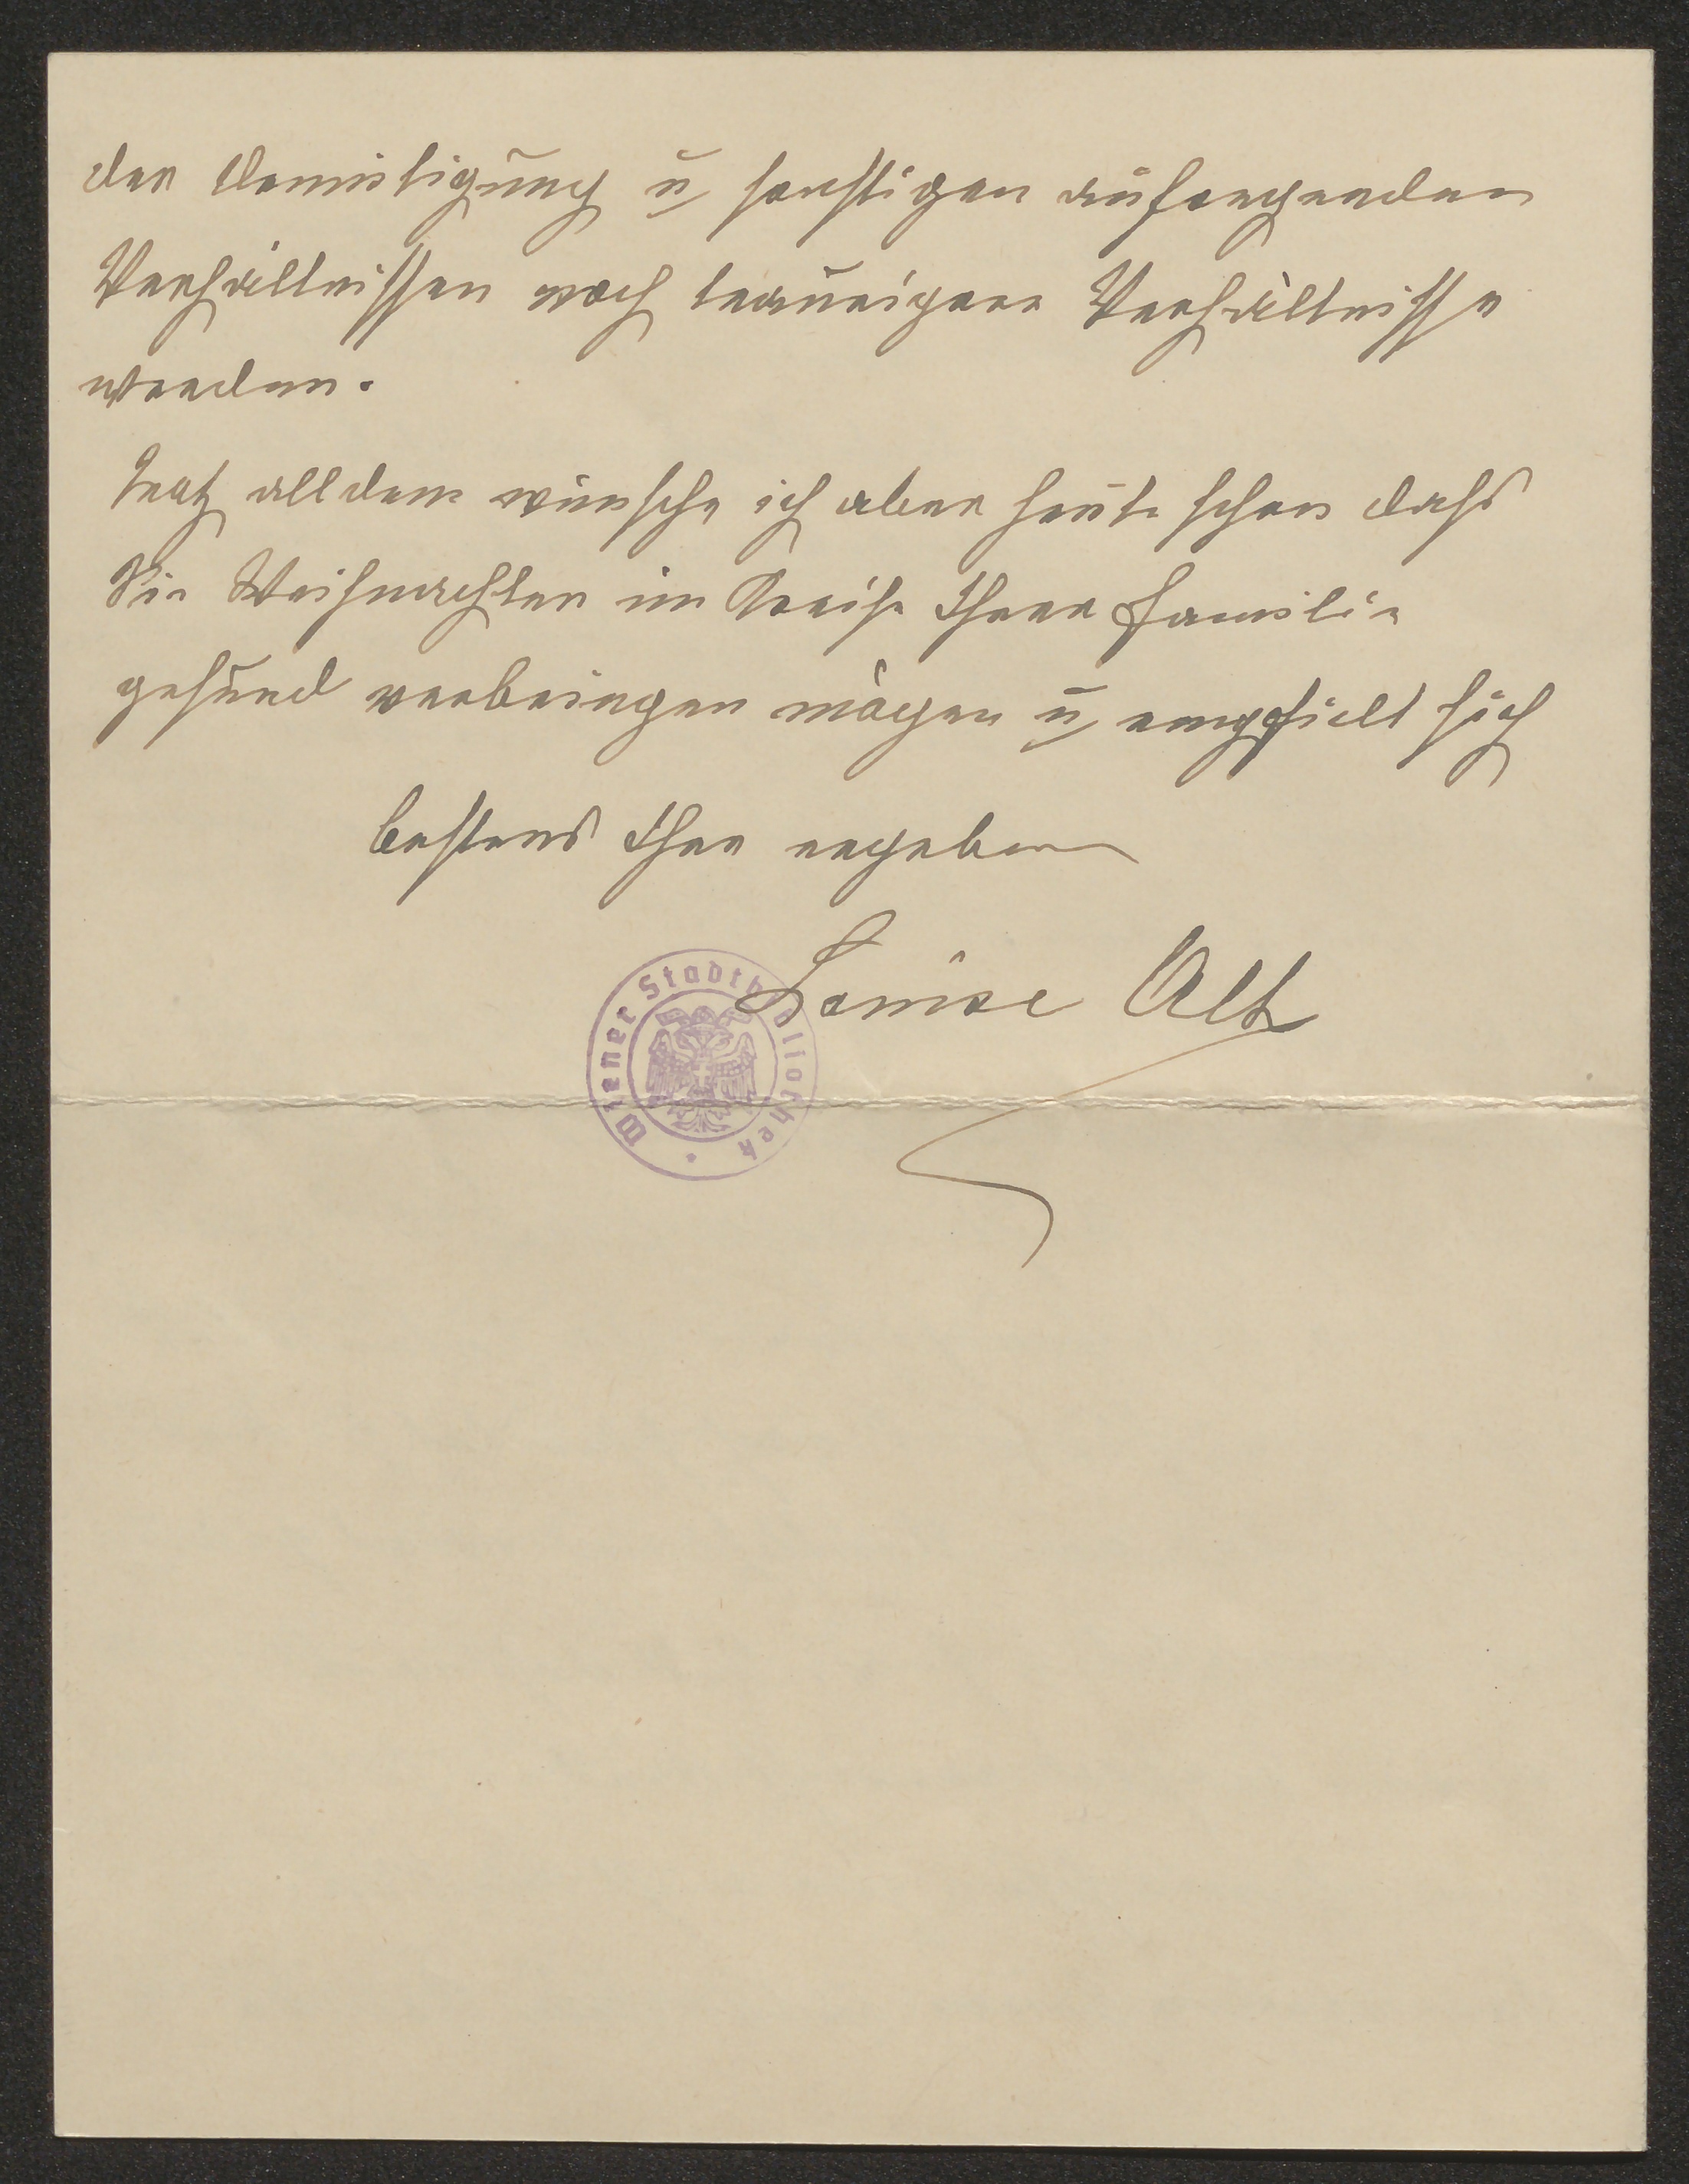 der Demütigung u sonstigen aufregenden
Verhältnissen noch traurigere Verhältnisse
werden.
Trotz alldem wünsche ich aber heute schon dass
Sie Weihnachten im Kreise Ihrer Familie
gesund verbringen mögen u empfielt sich
bestens Ihre ergebene
Louise Alt
Wiener Stadtbibliothek